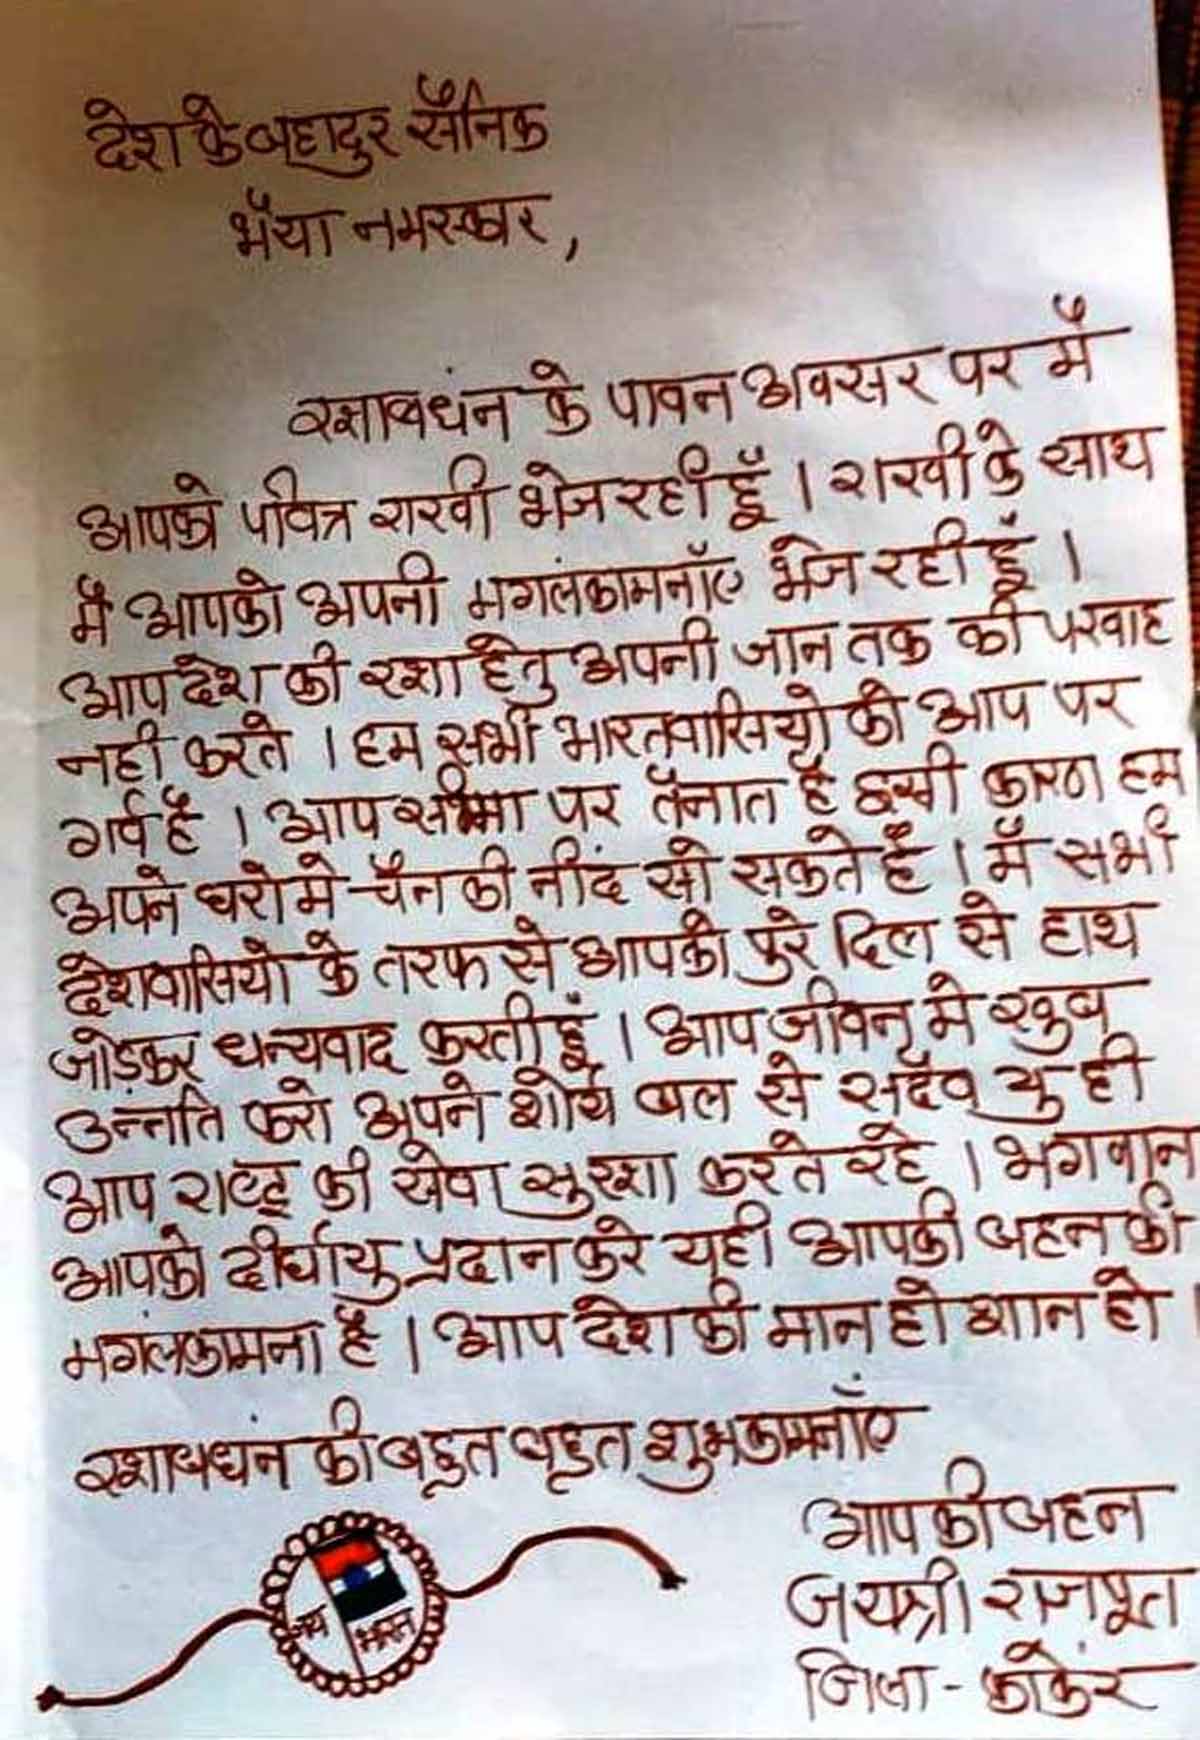 देश के बहादुर सैनिक
भैया नमस्कार,
रक्षाबधंन के पावन अवसर पर मैं
आपको पवित्र राखी भेज रही हूँ । राखी के साथ
मैं आपको अपनी मगंलकामनाएँ भेज रही हूं ।
आप देश की रक्षा हेतु अपनी जान तक की परवाह
नही करते । हम सभी भारतवासियो को आप पर
गर्व है । आप सीमा पर तैनात है इसी कारण हम
अपने घरो मे चैन की नींद सो सकते है । मैं सभी
देशवासियो के तरफ से आपको पुरे दिल से हाथ
जोड़कर धन्यवाद करती हूं । आप जीवन मे खुब
उन्नति करो अपने शौर्य बल से सदैव यु ही
आप राष्ट्र की सेवा सुरक्षा करते रहे । भगवान
आपको दीर्घायु प्रदान करे यही आपकी बहन की
मगंलकामना है । आप देश की मान हो शान हो ।
रक्षाबधंन की बहुत बहुत शुभकामनाएँ
आपकी बहन
जयश्री राजपूत
जिला - कांकेर
जय भारत